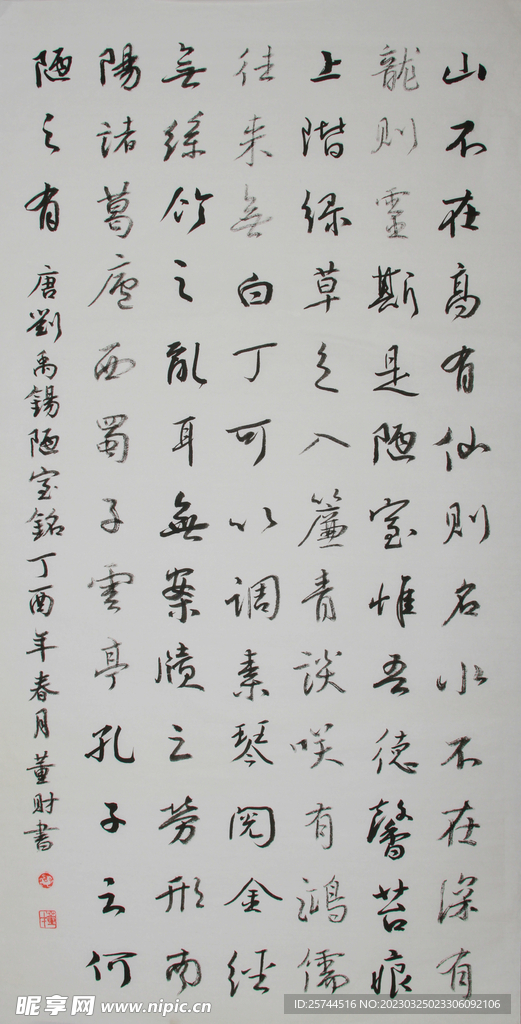 山不在高有仙則名水不在深有
龍則靈斯是陋室惟吾德馨苔痕
上階緑草色入簾青談咲有鴻儒
往来無白丁可以調素琴閲金經
無絲竹之亂耳無案牘之勞形南
陽諸葛廬西蜀子雲亭孔子云何
陋之有
唐劉禹錫陋室銘丁酉年春月董財書
昵享网 www.nipic.cn
ID:25744516 NO:20230325023306092106